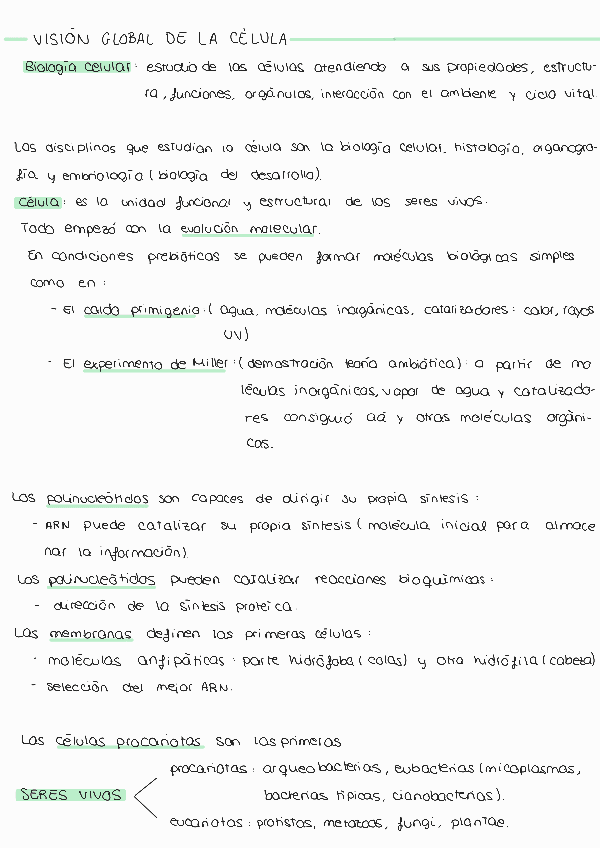 VISIÓN GLOBAL DE LA CÉLULA
Biología celular: estudio de las células atendiendo a sus propiedades, estructu-
ra, funciones, orgánulos, interacción con el ambiente y ciclo vital.
Las disciplinas que estudian la célula son la biología celular, histología, organogra-
fía y embriología (biología del desarrollo).
Célula: es la unidad funcional y estructural de los seres vivos.
Todo empezó con la evolución molecular.
En condiciones prebióticas se pueden formar moléculas biológicas simples
como en:
- El caldo primigenio: (agua, moléculas inorgánicas, catalizadores: calor, rayos
UV)
- El experimento de Miller: (demostración teoría ambiótica): a partir de mo
léculas inorgánicas, vapor de agua y catalizado-
res consiguió aá y otras moléculas orgáni-
cas.
Los polinucleótidos son capaces de dirigir su propia síntesis:
- ARN puede catalizar su propia síntesis (molécula inicial para almace
nar la información).
Los polinucleótidos pueden catalizar reacciones bioquímicas:
- dirección de la síntesis proteica.
Las membranas definen las primeras células:
- moléculas anfipáticas: parte hidrófoba (colas) y otra hidrófila (cabeza)
- selección del mejor ARN.
Las células procariotas son las primeras
procariotas: arqueobacterias, eubacterias (micoplasmas,
SERES VIVOS
bacterias típicas, cianobacterias).
eucariotas: protistas, metazoos, fungi, plantae.